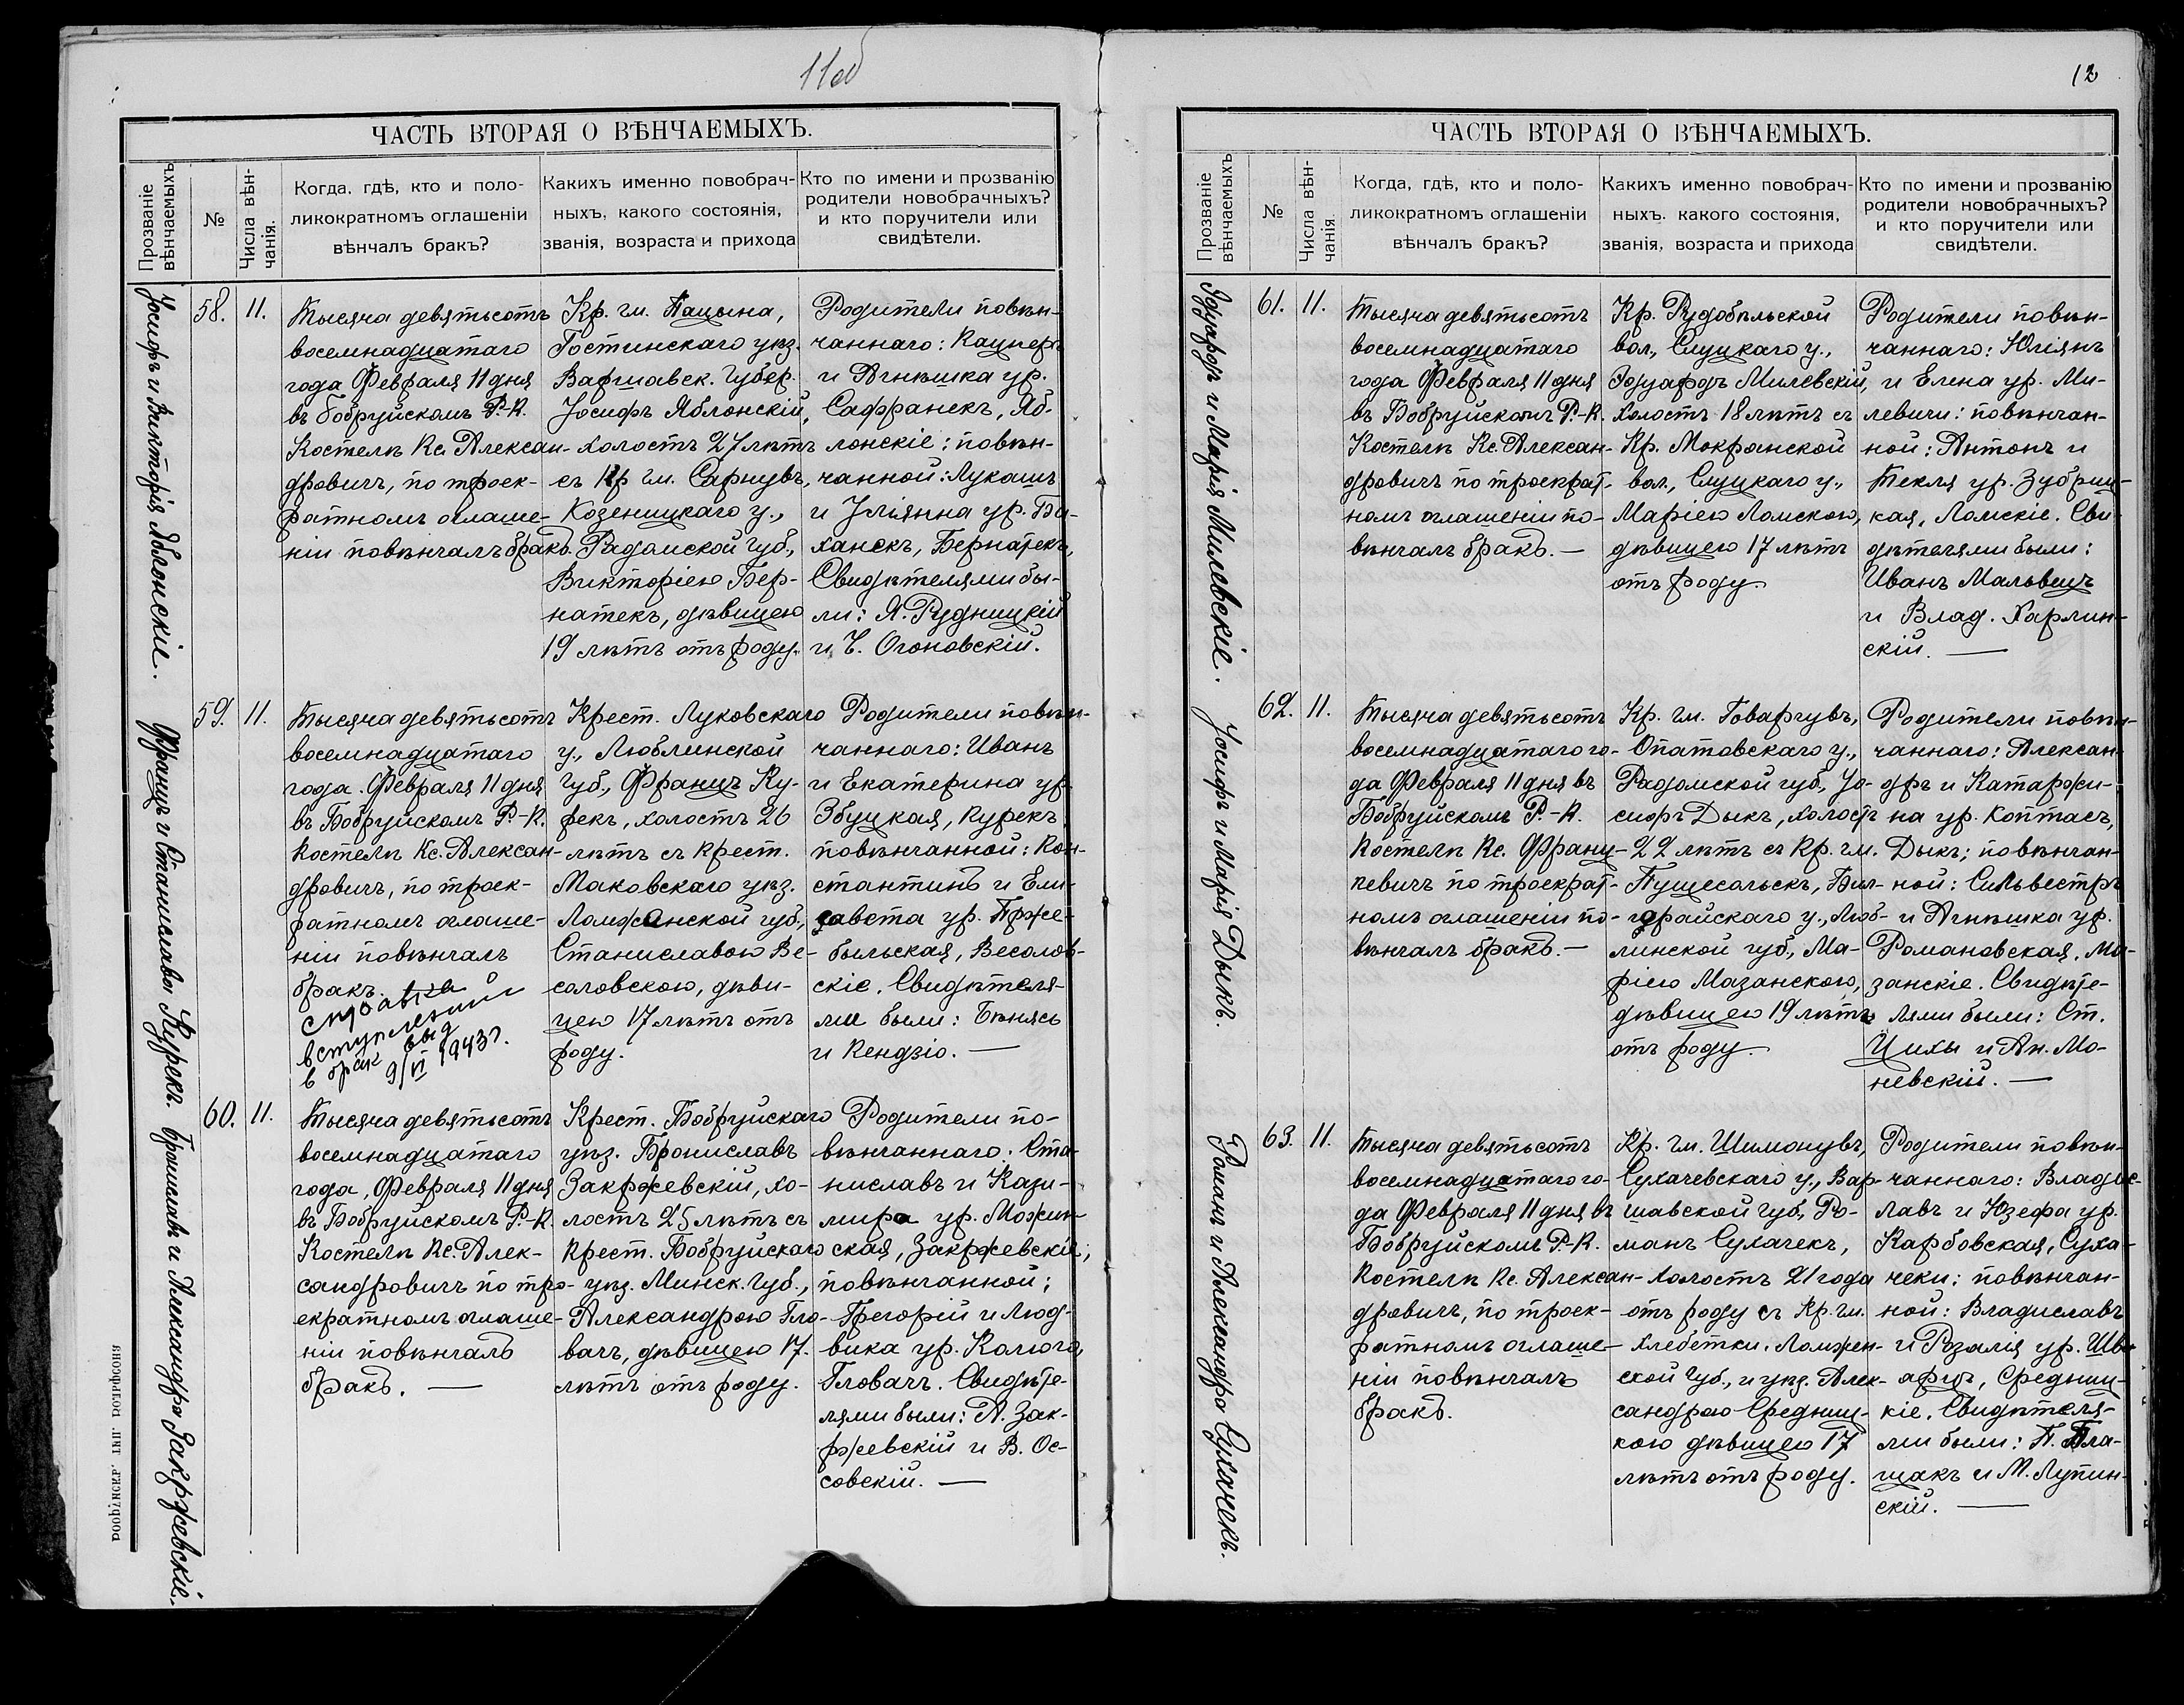 11об
ЧАСТЬ ВТОРАЯ О ВѢНЧАЕМЫХЪ.
Прозваніе вѣнчаемыхъ
№
Числа вѣн-
чанія.
Когда, гдѣ, кто и поло-
ликократномъ оглашеніи
вѣнчалъ бракъ?
Какихъ именно повобрач-
ныхъ, какого состоянія,
званія, возраста и прихода
Кто по имени и прозванію
родители новобрачныхъ?
и кто поручители или
свидѣтели.
Іосифъ и Викторія Яблонскіе.
58.
11.
Тысяча девятьсотъ
восемнадцатаго
года Февраля 11 дня
въ Бобруйскомъ Р.-К.
Костелѣ Кс. Алексан-
дровичъ, по троек-
ратномъ оглаше-
ніи повѣнчалъ бракъ.
Кр. гм. Пацына,
Гостинскаго уѣз.
Варшавск. Губер.
Іосифъ Яблонскій,
холостъ 27 лѣтъ
съ Кр гм. Сарнувъ,
Козеницкаго у.,
Радомской Губ.,
Викторіею Бер-
натекъ, дѣвицею
19 лѣтъ отъ роду.
Родители повѣн-
чаннаго: Кацперъ
и Агнѣшка ур.
Саффранекъ, Яб-
лонскіе; повѣн-
чанной: Лукашъ
и Уліянна ур. Ба-
ханекъ, Бернатекъ,
Свидѣтелями бы-
ли: Я. Рудницкій
и Ч. Огоновскій.
Францъ и Станислава Курекъ.
59.
11.
Тысяча девятьсотъ
восемнадцатаго
года Февраля 11 дня
въ Бобруйскомъ Р.-К.
Костелѣ Кс. Алексан-
дровичъ, по троек-
ратномъ оглаше-
ніи повѣнчалъ
бракъ.
справка
вступлении
в брак выд
9/VI 1943 г.
Крест. Луковскаго
у., Люблинской
Губ., Францъ Ку-
рекъ, холостъ 26
лѣтъ съ Крест.
Маковскаго уѣз.
Ломжанской губ.,
Станиславою Ве-
соловскою, дѣви-
цею 17 лѣтъ отъ
роду.
Родители повѣн-
чаннаго: Иванъ
и Екатерина ур.
Збуцкая, Курекъ
повѣнчанной: Кон-
стантинъ и Ели-
завета ур. Прже-
быльская, Весолов-
скіе. Свидѣтеля-
ми были: Бѣнясь
и Кендзіо. —
Брониславъ и Александра Закржевскіе.
60.
11.
Тысяча девятьсотъ
восемнадцатаго
года, Февраля 11 дня
въ Бобруйскомъ Р.-К.
Костелѣ Кс. Алек-
сандровичъ по тро-
екратномъ оглаше-
ніи повѣнчалъ
бракъ. —
Крест. Бобруйскаго
уѣз. Брониславъ
Закржевскій, хо-
лостъ 25 лѣтъ съ
Крест. Бобруйскаго
уѣз. Минск. Губ.,
Александрою Гло-
вачъ, дѣвицею 17.
лѣтъ отъ роду.
Родители по-
вѣнчаннаго: Ста-
ниславъ и Кази-
мира ур. Можин-
ская, Закржевскіе;
повѣнчанной:
Грегорій и Люд-
вика ур. Калюга,
Гловачъ. Свидѣте-
лями были: А. Зак-
ржевскій и В. Ос-
совскій. —
12
ЧАСТЬ ВТОРАЯ О ВѢНЧАЕМЫХЪ.
Прозваніе вѣнчаемыхъ
№
Числа вѣн-
чанія
Когда, гдѣ, кто и поло-
ликократномъ оглашеніи
вѣнчалъ бракъ?
Какихъ именно повобрач-
ныхъ. какого состоянія,
званія, возраста и прихода
Кто по имени и прозванію
родители новобрачныхъ?
и кто поручители или
свидѣтели.
Эдуардъ и Марія Милевскіе.
61.
11.
Тысяча девятьсотъ
восемнадцатаго
года Февраля 11 дня
въ Бобруйскомъ Р.-К.
Костелѣ Кс. Алексан-
дровичъ по троекрат-
номъ оглашеніи по-
вѣнчалъ бракъ. —
Кр. Рудобѣльской
вол., Слуцкаго у.,
Эдуардъ Милевскій,
холостъ 18 лѣтъ съ
Кр. Мокранской
вол., Слуцкаго у.,
Маріею Ломскою,
дѣвицею 17 лѣтъ
отъ роду.
Родители повѣн-
чаннаго: Юліянъ
и Елена ур. Ми-
левичи: повѣнчан-
ной: Антонъ и
Текля ур. Зубриц-
кая, Ломскіе. Сви-
дѣтелями были:
Иванъ Мальвицъ
и Влад. Харлин-
скій. —
Іосифъ и Марія Дыкъ.
62.
11.
Тысяча девятьсотъ
восемнадцатаго го-
да Февраля 11 дня въ
Бобруйскомъ Р.-К.
Костелѣ Кс. Франц-
кевичъ по троекрат-
номъ оглашеніи по-
вѣнчалъ бракъ. —
Кр. гм. Говарчувъ,
Опатовскаго у.,
Радомской губ., Іо-
сифъ Дыкъ, холостъ
22 лѣтъ съ Кр. гм.
Пущесольскъ, Бил-
горайскаго у., Люб-
линской губ., Ма-
ріею Мазанскою,
дѣвицею 19 лѣтъ
отъ роду.
Родители повѣн-
чаннаго: Алексан-
дръ и Катаржи-
на ур. Коптасъ,
Дыкъ; повѣнчан-
ной: Сильвестръ
и Агнѣшка ур.
Романовская, Ма-
занскіе. Свидѣте-
лями были: Ст.
Цихы и Ан. Мо-
невскій. —
Романъ и Александра Сухачекъ.
63.
11.
Тысяча девятьсотъ
восемнадцатаго го-
да Февраля 11 дня въ
Бобруйскомъ Р.-К.
Костелѣ Кс. Алексан-
дровичъ, по троек-
ратномъ оглаше-
ніи повѣнчалъ
бракъ.
Кр. гм. Шимонувъ,
Сухачевскаго у., Вар-
шавской Губ., Ро-
манъ Сухачекъ,
холостъ 21 года
отъ роду съ Кр. гм.
Хлебетки, Ломжен-
ской Губ., и уѣз. Алек-
сандрою Средниц-
кою дѣвицею 17
лѣтъ отъ роду.
Родители повѣн-
чаннаго: Владис-
лавъ и Юзефа ур.
Карбовская, Суха-
чеки; повѣнчан-
ной: Владиславъ
и Розалія ур. Шв-
арцъ, Средниц-
кіе. Свидѣтеля-
ми были: П. Пла-
щакъ и М. Лупин-
скій. —